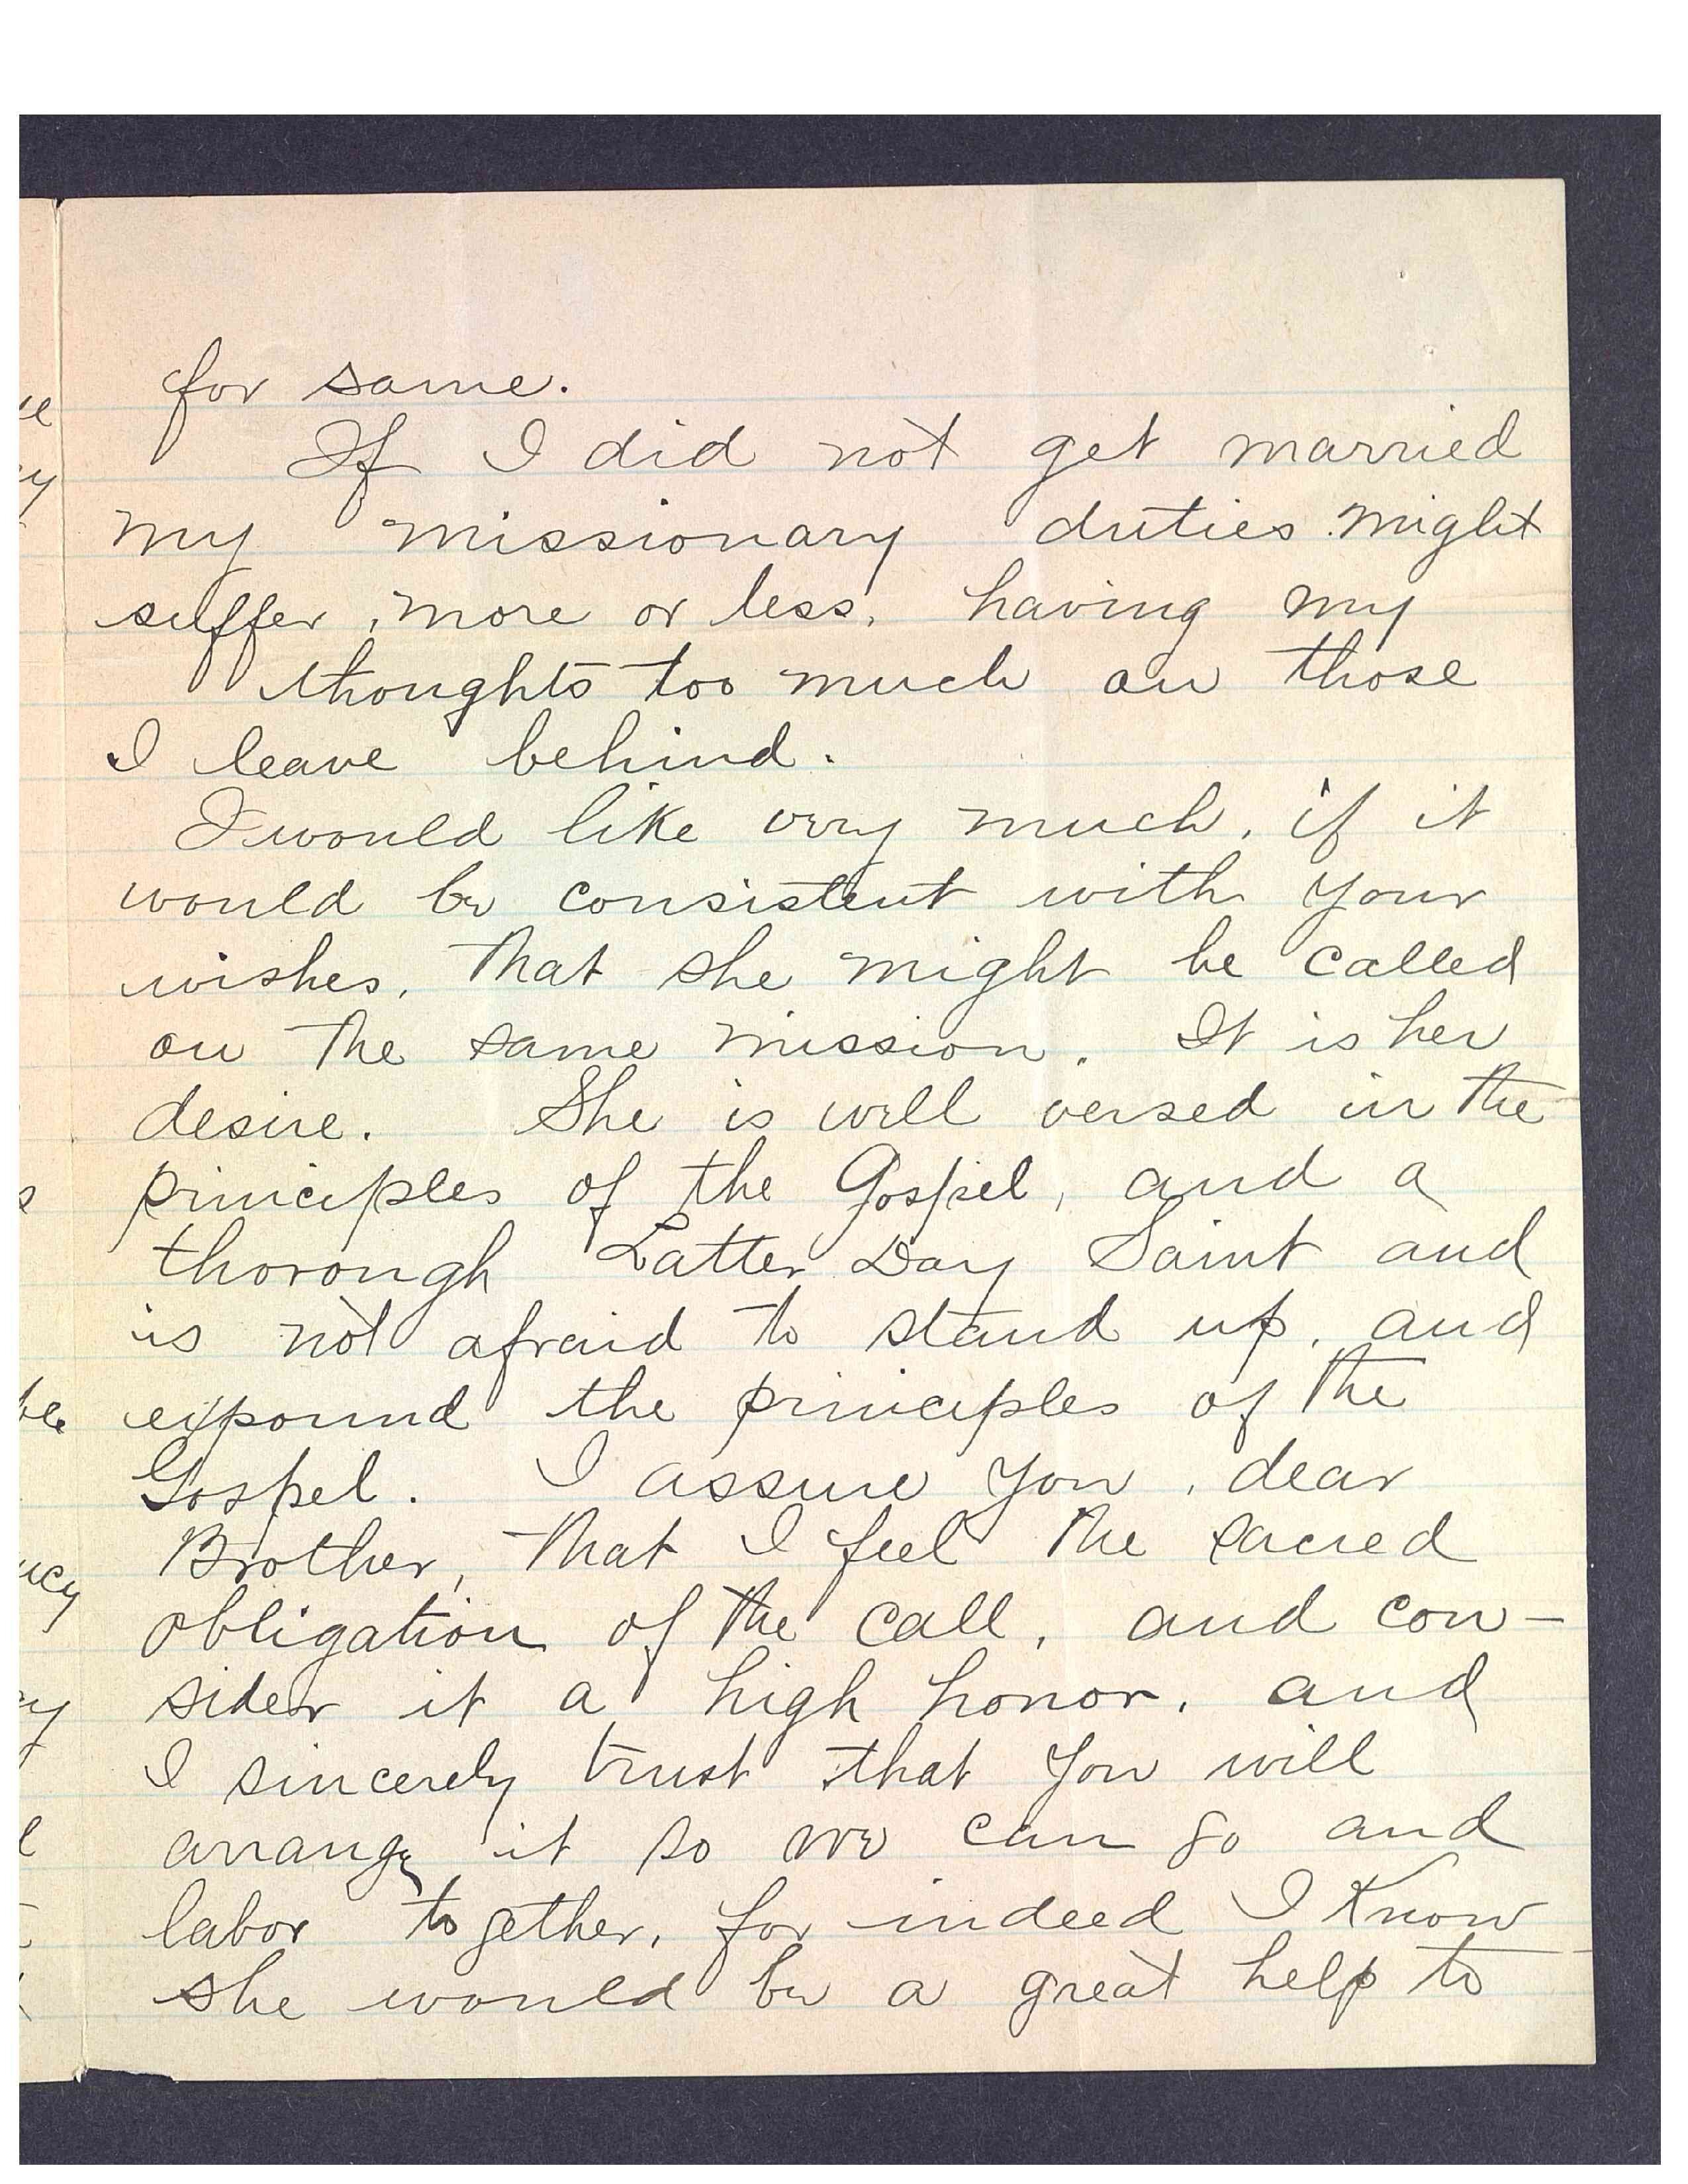 for same.
If I did not get married
my missionary duties might
suffer, more or less, having my
thoughts too much on those
I leave behind.
I would like very much, if it
would be consistent with your
wishes, that she might be called
on the same mission. It is her
desire. She is well versed in the
principles of the Gospel, and a
thorough Latter Day Saint and
is not afraid to stand up, and
expound the principles of the
Gospel. I assure you, dear
Brother, that I feel the sacred
obligation of the call, and con-
sider it a high honor, and
I sincerely trust that you will
arrange it so we can go and
labor together, for indeed I know
she would be a great help to